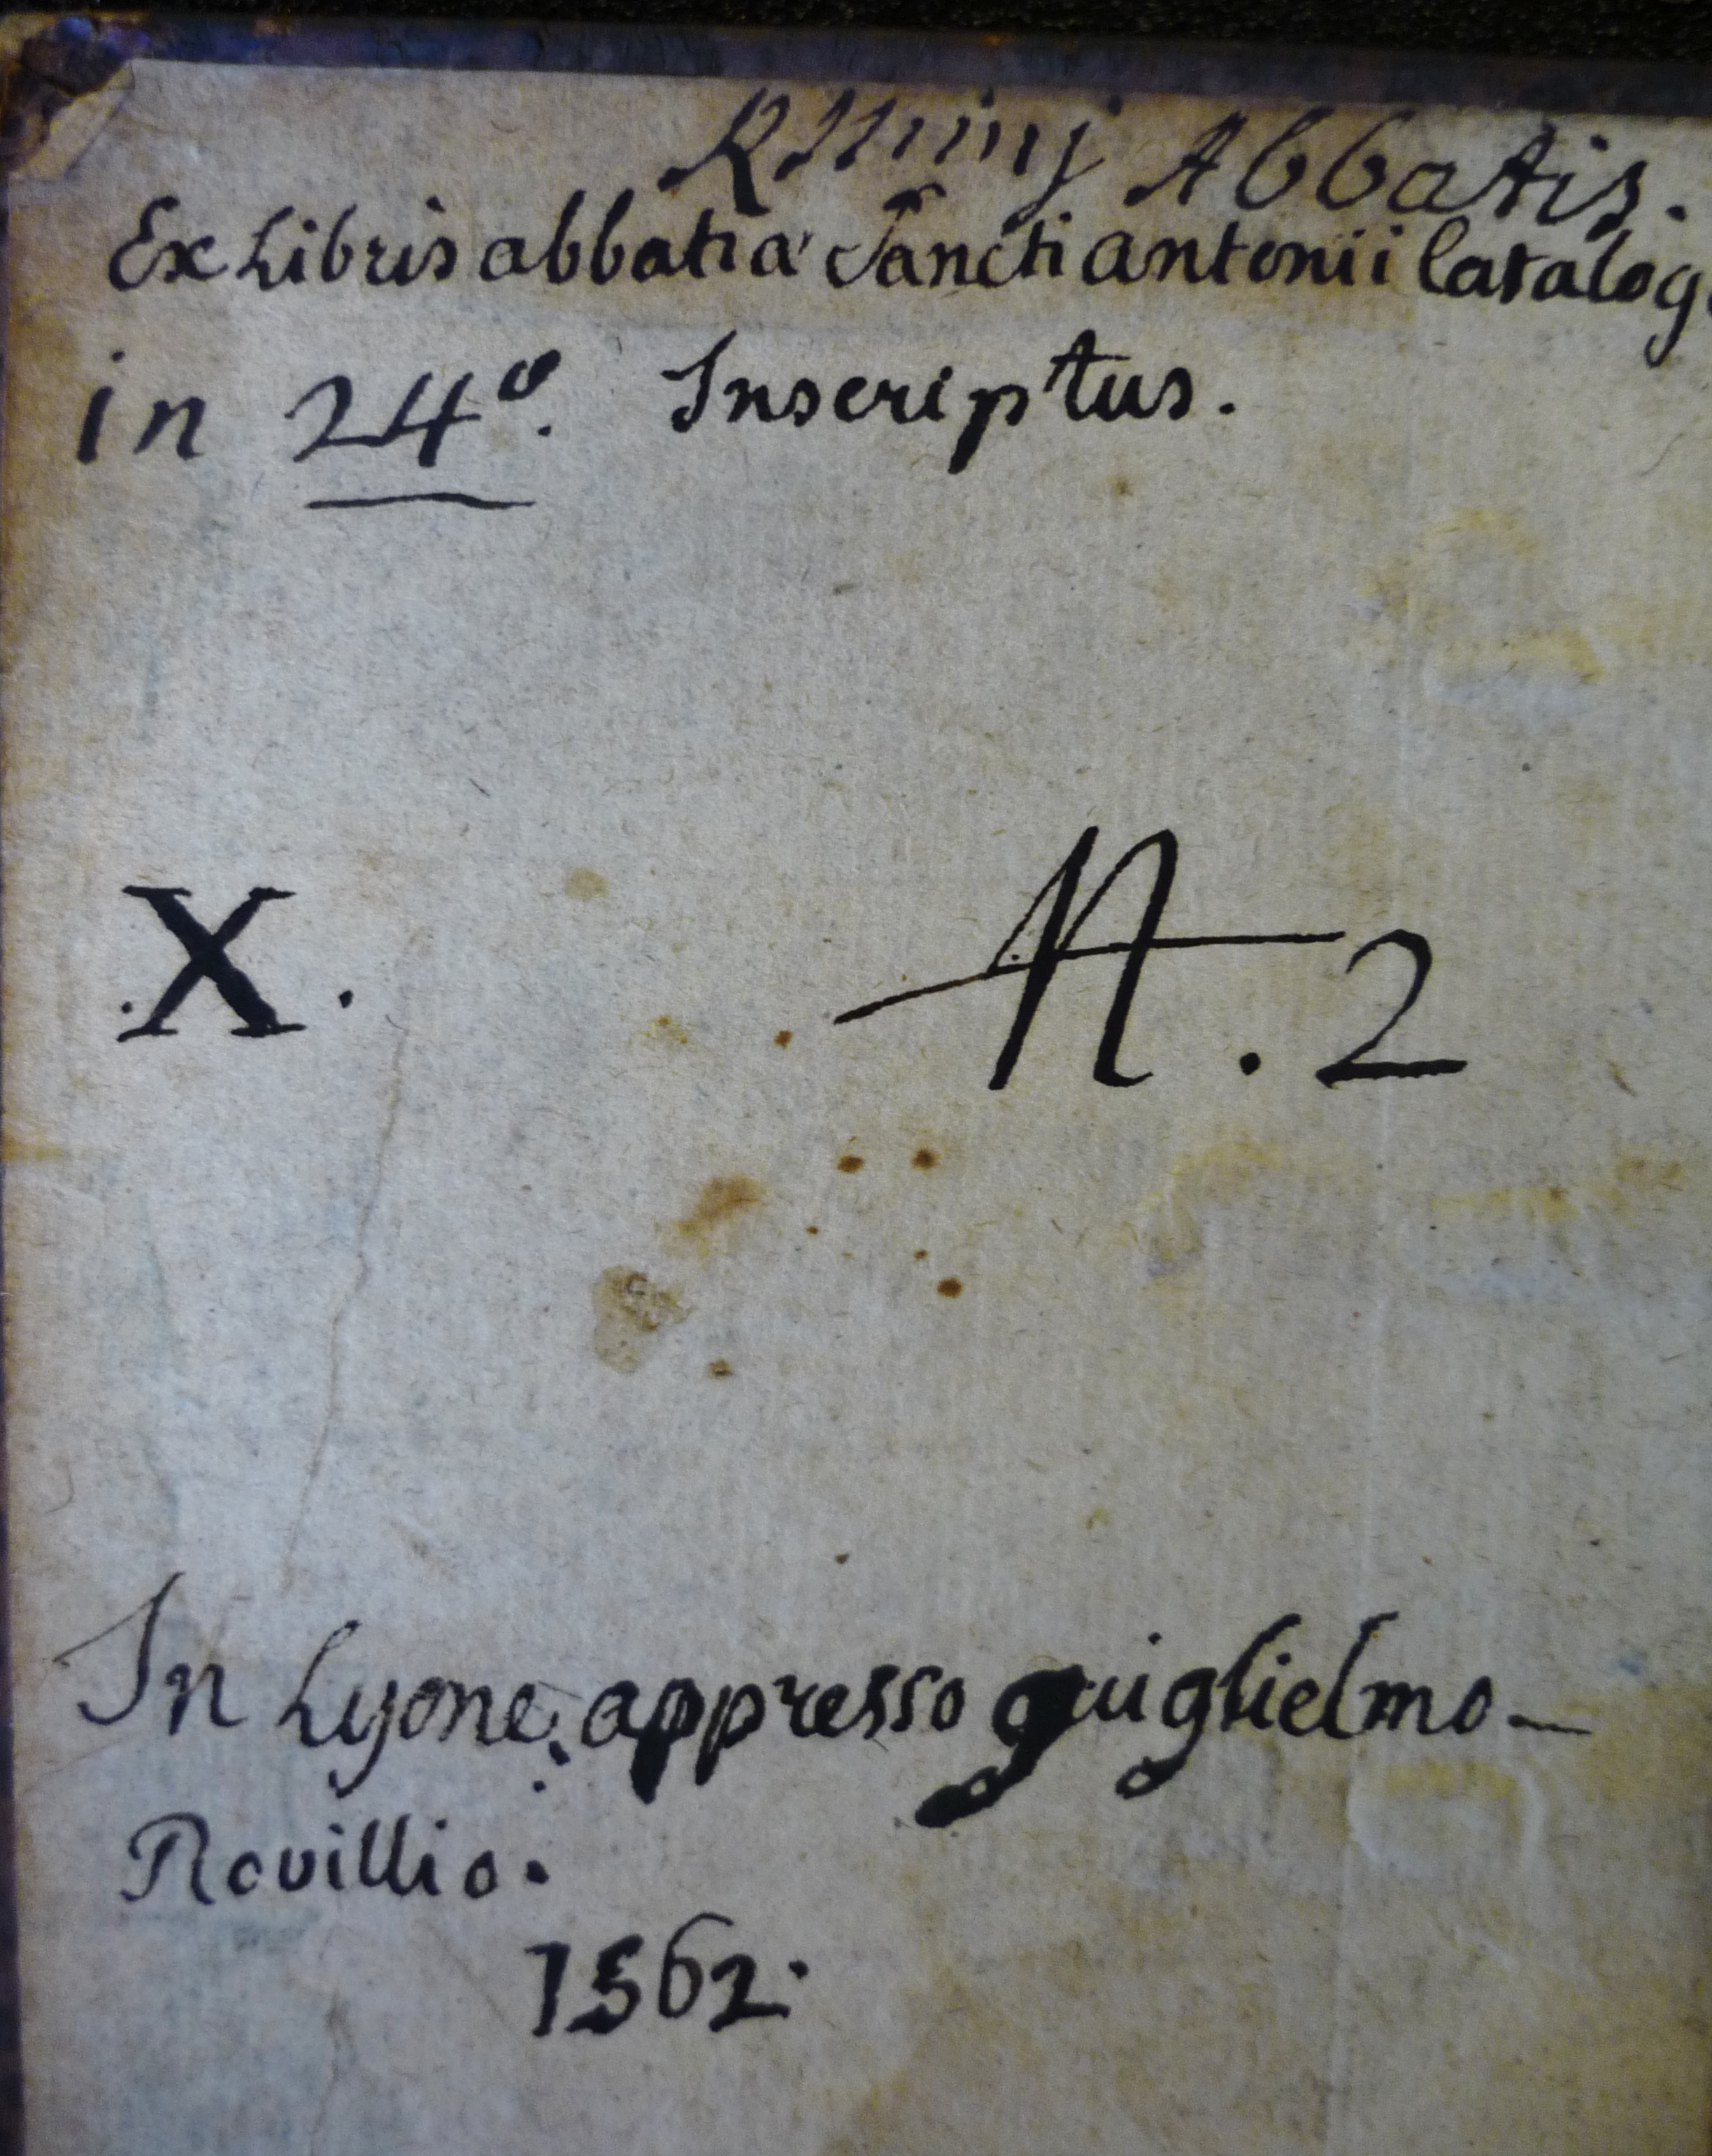 RSSimj Abbatis.
Ex Libris abbatia Sancti antonii Catalog
in 24º. Inscriptus.
.X. N.2
In Lyone; appresso guiglielmo—
Rovillio.
1562.